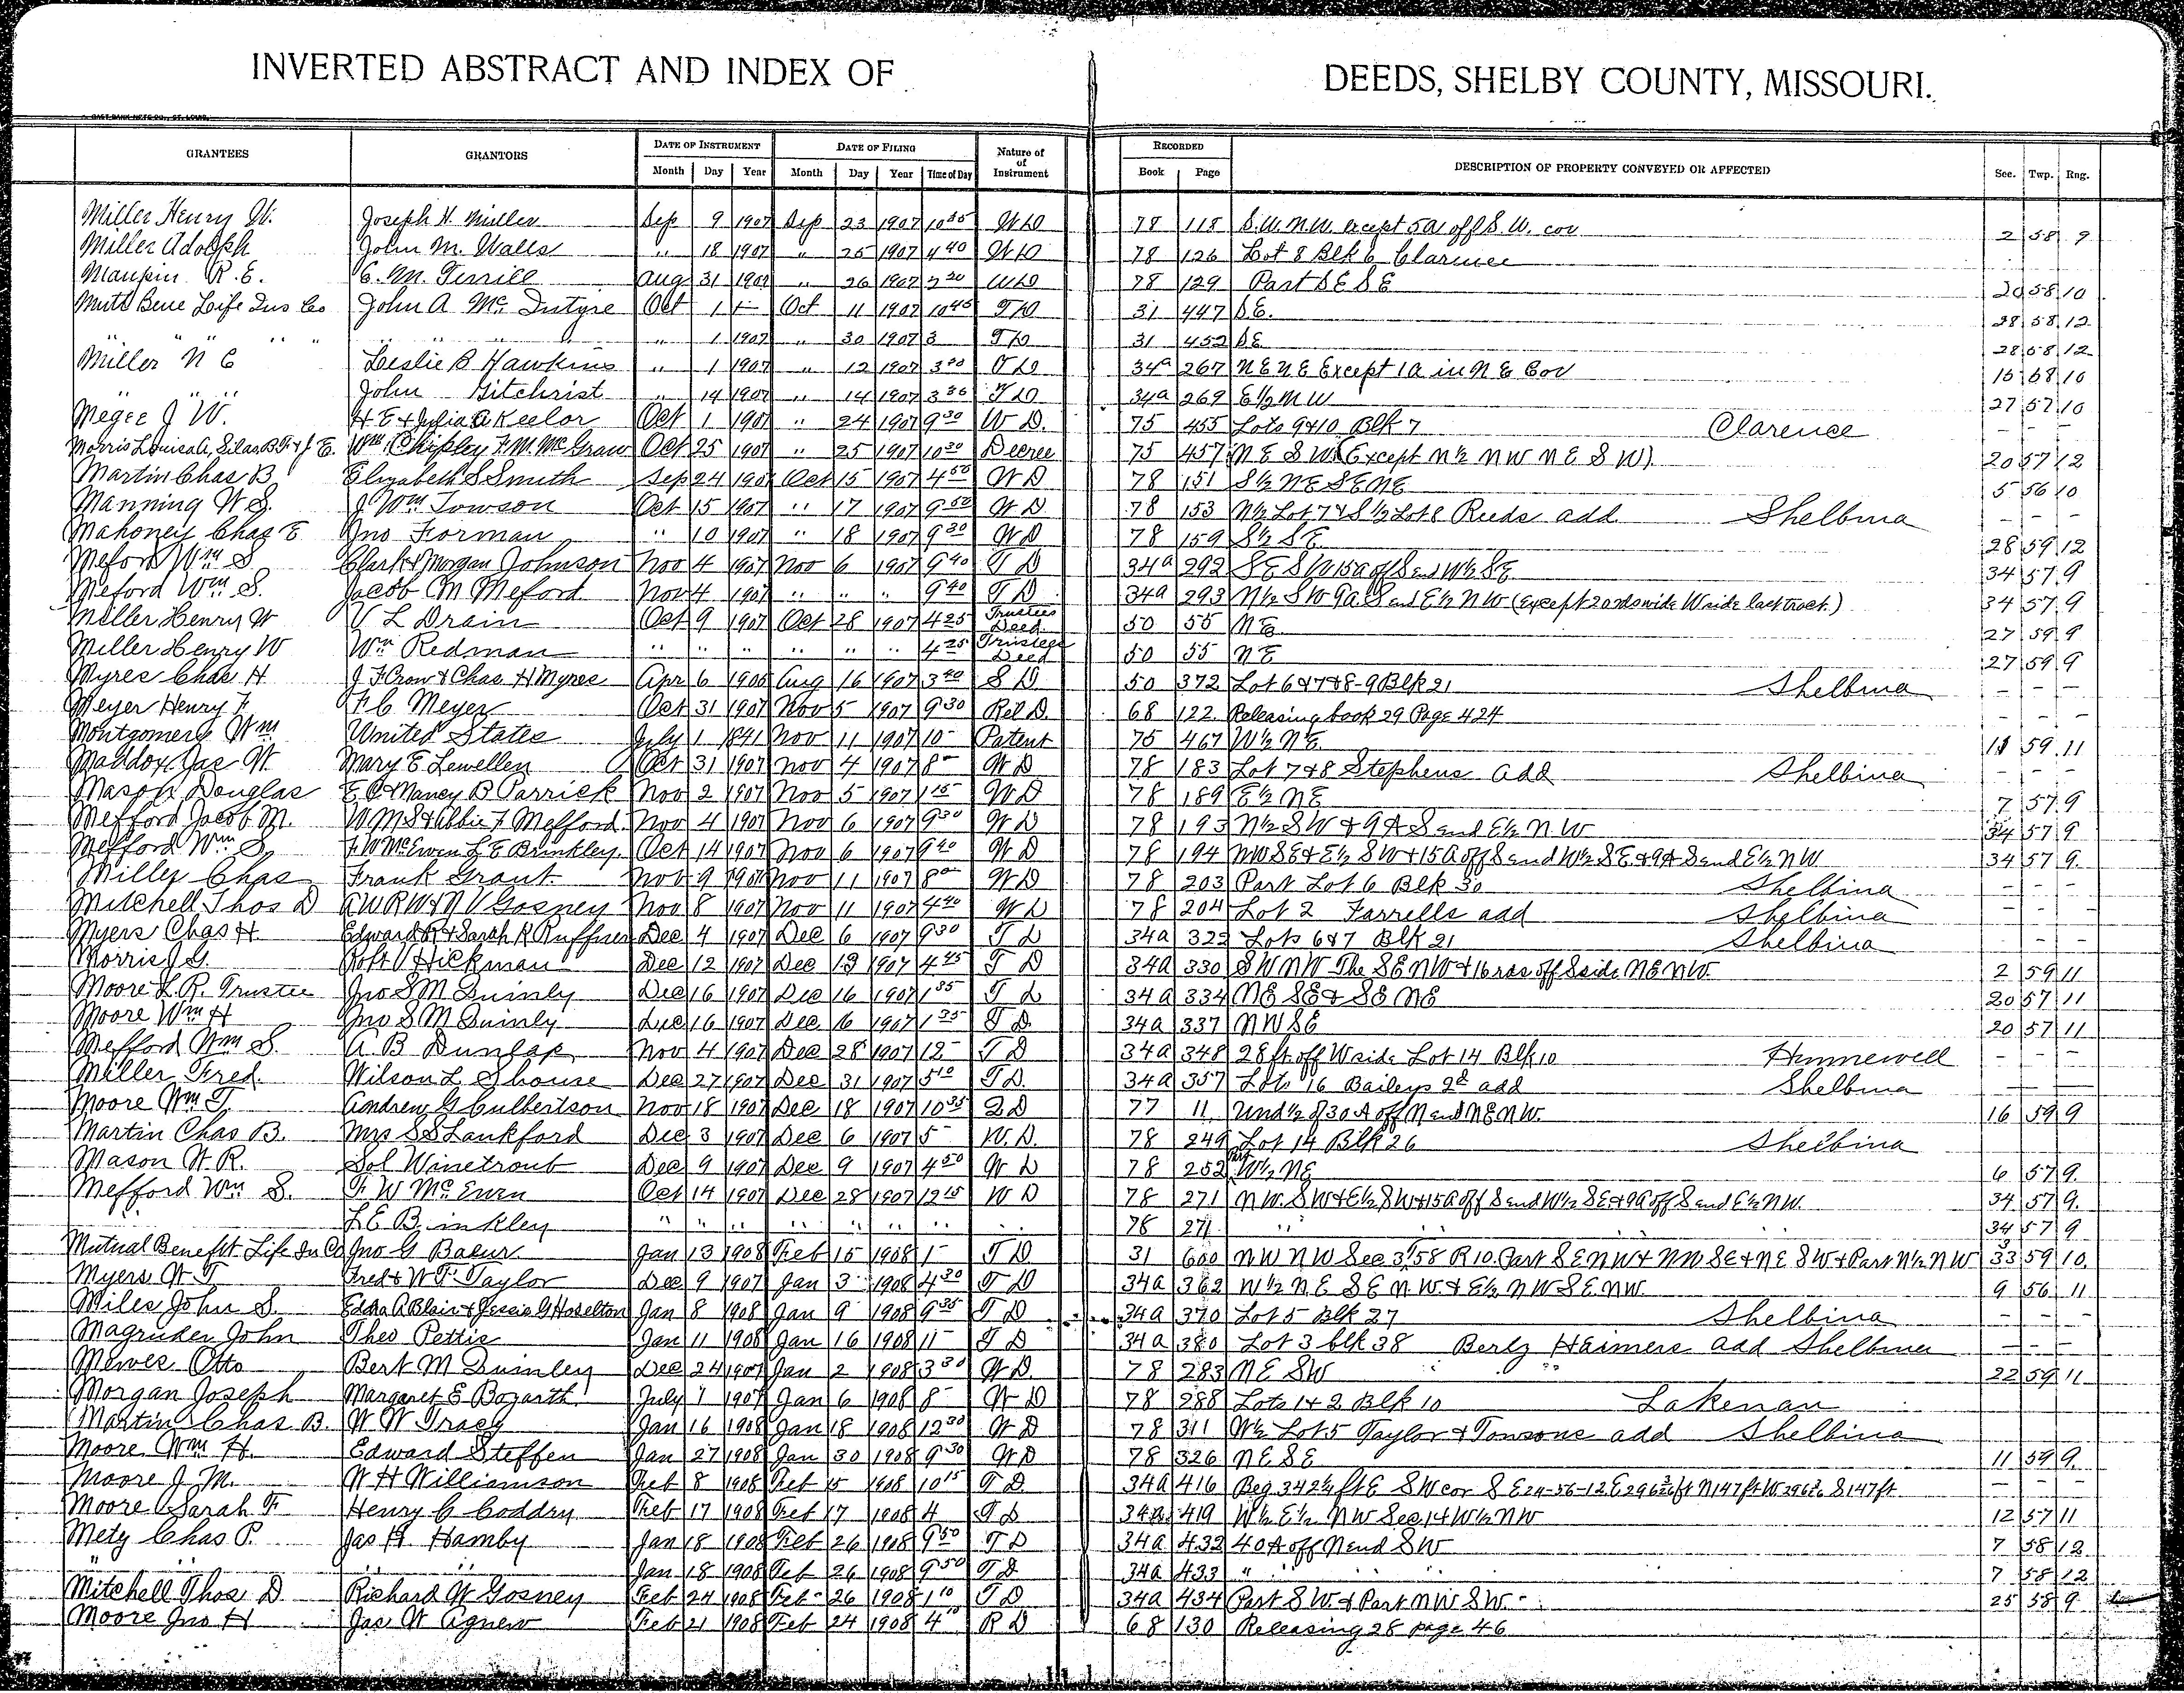 INVERTED ABSTRACT AND INDEX OF DEEDS, SHELBY COUNTY, MISSOURI.
GRANTEES GRANTORS DATE OF INSTRUMENT DATE OF FILING Nature of of Instrument RECORDED DESCRIPTION OF PROPERTY CONVEYED OR AFFECTED Sec. Twp. Rng.
Month Day Year Month Day Year Time of Day Book Page
Miller Henry W. Joseph H. Miller Sep 9 1907 Sep 23 1907 10 35 W D 78 118 S.W. N.W. except 5a off S.W. cor 2 58 9
Miller Adolph John M. Walls " 18 1907 " 25 1907 4 40 W D 78 126 Lot 8 Blk 6 Clarence
Maupin R. E. E. M. Terrill Aug 31 1907 " 26 1907 2 20 W D 78 129 Part S E S E 20 58 10
Mutl Bene Life Ins Co John A Mc Intyre Oct 1 Oct 11 1907 10 45 T D 31 447 S E. 28 58 12
" " " " " 1 1907 " 30 1907 3 T D 31 452 S E 28 58 12
Miller N E Leslie B Hawkins " 1 1907 " 12 1907 3 30 T D 34a 267 N E N E Except 1a in N E Cor 15 58 10
" " John Gitchrist " 14 1907 " 14 1907 3 36 T D 34a 269 E ½ N W 27 57 10
Megee J W. H E & Julia A Keelor Oct 1 1907 " 24 1907 9 30 W D. 75 455 Lots 9 & 10 Blk 7 Clarence - - -
Morris Louisa A, Silas B F & J E. Wm Chipley F. M. McGraw Oct 25 1907 " 25 1907 10 30 Decree 75 457 N E S W (Except N ½ N W N E S W) 20 57 12
Martin Chas B Elizabeth S Smith Sep 24 1907 Oct 15 1907 4 50 W D 78 151 S ½ N E S E N E 5 56 10
Manning W S. J Wm Towson Oct 15 1907 " 17 1907 9 50 W D 78 153 N ½ Lot 7 & S ½ Lot 8 Reeds add Shelbina - - -
Mahoney Chas E Jno Forman " 10 1907 " 18 1907 9 30 W D 78 159 S ½ S E 28 59 12
Meford Wm S Clark & Morgan Johnson Nov 4 1907 Nov 6 1907 9 40 T D 34a 292 S E S W 15a off S end W ½ S E 34 57 9
Meford Wm S. Jacob M Meford Nov 4 1907 " " " 9 40 T D 34a 293 N ½ S W 9a S end E ½ N W (Except 2 rds wide W side last tract.) 34 57 9
Miller Henry W V L Drain Oct 9 1907 Oct 28 1907 4 25 Trustees Deed 50 55 N E 27 59 9
Miller Henry W Wm Redman " " " " " " 4 25 Trustees Deed 50 55 N E 27 59 9
Myres Chas H J F Crow & Chas H Myres Apr 6 1906 Aug 16 1907 3 40 S D 50 372 Lot 6 & 7 & 8-9 Blk 21 Shelbina - - -
Meyer Henry F F C Meyer Oct 31 1907 Nov 5 1907 9 30 Rel D. 68 122 Releasing book 29 Page 424 - - -
Montgomery Wm United States July 1 1841 Nov 11 1907 10 - Patent 75 467 W ½ N E 11 59 11
Maddox Jas W. Mary E Lewellen Oct 31 1907 Nov 4 1907 8 - W D 78 183 Lot 7 & 8 Stephens add Shelbina - - -
Mason Douglas E C & Nancy B Parrick Nov 2 1907 Nov 5 1907 1 15 W D 78 189 E ½ N E 7 57 9
Mefford Jacob M. W M S & Abbie F Mefford Nov 4 1907 Nov 6 1907 9 30 W D 78 193 N ½ S W & 9 A S end E ½ N W 34 57 9
Mefford Wm S. F W McEwen L E Brinkley Oct 14 1907 Nov 6 1907 9 40 W D 78 194 N W S E & E ½ S W & 15 a off S end W ½ S E & 9 A S end E ½ N W 34 57 9.
Miller Chas Frank Grant Nov 9 1907 Nov 11 1907 8 00 W D 78 203 Part Lot 6 Blk 30 Shelbina - - -
Mitchell Thos D A W R W & N V Gosney Nov 8 1907 Nov 11 1907 4 40 W D 78 204 Lot 2 Farrells add Shelbina - - -
Myers Chas H. Edward R & Sarah R Ruffner Dec 4 1907 Dec 6 1907 9 30 T D 34a 322 Lots 6 & 7 Blk 21 Shelbina - - -
Morris J G. Robt V Hickman Dec 12 1907 Dec 13 1907 4 45 T D 34a 330 S W N W The S E N W & 16 rds off S side N E N W. 2 59 11
Moore L. R. Trustee Jno S M Quinly Dec 16 1907 Dec 16 1907 1 35 T D 34a 334 N E S E & S E N E 20 57 11
Moore Wm H Jno S M Quinly Dec 16 1907 Dec 16 1907 1 35 T D. 34a 337 N W S E 20 57 11
Mefford Wm S. A. B Dunlap Nov 4 1907 Dec 28 1907 12 - T D 34a 348 28 ft off W side Lot 14 Blk 10 Hunnewell - - -
Miller Fred. Wilson L Shouse Dec 27 1907 Dec 31 1907 5 10 T D. 34a 357 Lots 16 Baileys 2d add Shelbina
Moore Wm T. Andrew G Culbertson Nov 18 1907 Dec 18 1907 10 35 Q D 77 11 Und ½ of 30 A off N end N E N W. 16 59 9
Martin Chas B. Mrs S S Lankford Dec 3 1907 Dec 6 1907 5 - W. D. 78 249 Lot 14 Blk 26 Shelbina
Mason W. R. Sol Winetroub Dec 9 1907 Dec 9 1907 4 50 W D 78 252 Part W ½ N E 6 57 9.
Mefford Wm S. F. W McEwen Oct 14 1907 Dec 28 1907 12 15 W D 78 271 N W. S W & E ½ S W & 15 a off S end W ½ S E & 9a off S end E ½ N W. 34 57 9.
L E Brinkley " " " " " " " 78 271 " " 34 57 9
Mutual Benefit Life In Co Jno G Baeur Jan 13 1908 Feb 15 1908 1 - T D 31 600 N W N W Sec 3 T 58 R 10. Part S E N W & N W S E & N E S W & Part N ½ N W 33 59 10.
Myers W T Fred & W. F. Taylor Dec 9 1907 Jan 3 1908 4 30 T D 34a 362 W ½ N E S E N W. & E ½ N W S E N W. 9 56 11
Miles John S. Edna A Blair & Jessie G Hoselton Jan 8 1908 Jan 9 1908 9 35 T D 34a 370 Lot 5 Blk 27 Shelbina - - -
Magruder John Theo Pettis Jan 11 1908 Jan 16 1908 11 - T D 34a 380 Lot 3 blk 38 Berlz Haimers add Shelbina - - -
Mewes Otto Bert M Quinley Dec 24 1907 Jan 2 1908 3 30 W D. 78 283 N E S W 22 59 11
Morgan Joseph Margaret E Bogarth July 1 1907 Jan 6 1908 8 - W D 78 288 Lots 1 & 2 Blk 10 Lakenan
Martin Chas B. W W Tracy Jan 16 1908 Jan 18 1908 12 30 W D 78 311 W ½ Lot 5 Taylor & Towsons add Shelbina
Moore Wm H. Edward Steffen Jan 27 1908 Jan 30 1908 9 30 W D 78 326 N E S E 11 59 9.
Moore J M. W H Williamson Feb 8 1908 Feb 15 1908 10 15 T D. 34a 416 Beg 342 ½ ft E S W cor S E 24-56-12 E 296 ft N 147 ft W 296 S 147 ft - -
Moore Sarah F Henry C Coddry Feb 17 1908 Feb 17 1908 4 T D 34a 419 W ½ E ½ N W Sec 1 & W ½ N W 12 57 11
Metz Chas P. Jas H. Hamby Jan 18 1908 Feb 26 1908 9 50 T D 34a 432 40 A off N end S W 7 58 12
" " " " Jan 18 1908 Feb 26 1908 9 50 T D 34a 433 " " 7 58 12
Mitchell Thos D Richard W Gosney Feb 24 1908 Feb 26 1908 1 10 T D 34a 434 Part S W & Part N W S W 25 58 9
Moore Jno H Jas W Agnew Feb 21 1908 Feb 24 1908 4 10 R D 68 130 Releasing 28 page 46